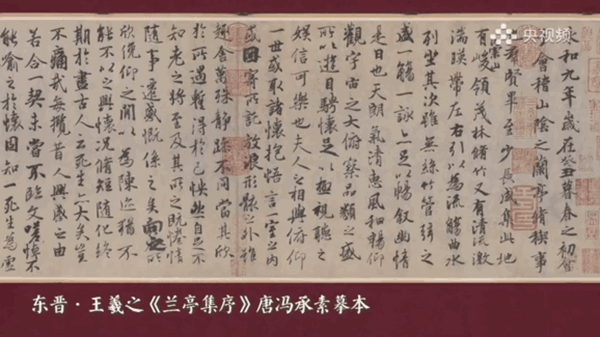 央视频
永和九年歲在癸丑暮春之初會
會稽山陰之蘭亭脩稧事
群賢畢至少長咸集此地
有崇山峻領茂林脩竹又有清流激
湍暎帶左右引以為流觴曲水
列坐其次雖無絲竹管弦之
盛一觴一詠亦足以暢敘幽情
是日也天朗氣清惠風和暢仰
觀宇宙之大俯察品類之盛
所以遊目騁懷足以極視聽之
娛信可樂也夫人之相與俯仰
一世或取諸懷抱悟言一室之內
或因寄所託放浪形骸之外雖
趣舍萬殊靜躁不同當其欣
於所遇蹔得於己怏然自足不
知老之將至及其所之既惓情
隨事遷感慨係之矣向之所
欣俛仰之閒以為陳迹猶不
能不以之興懷況脩短隨化終
期於盡古人云死生亦大矣豈
不痛哉每攬昔人興感之由
若合一契未嘗不臨文嗟悼不
能喻之於懷固知一死生為虛
东晋·王羲之《兰亭集序》唐冯承素摹本